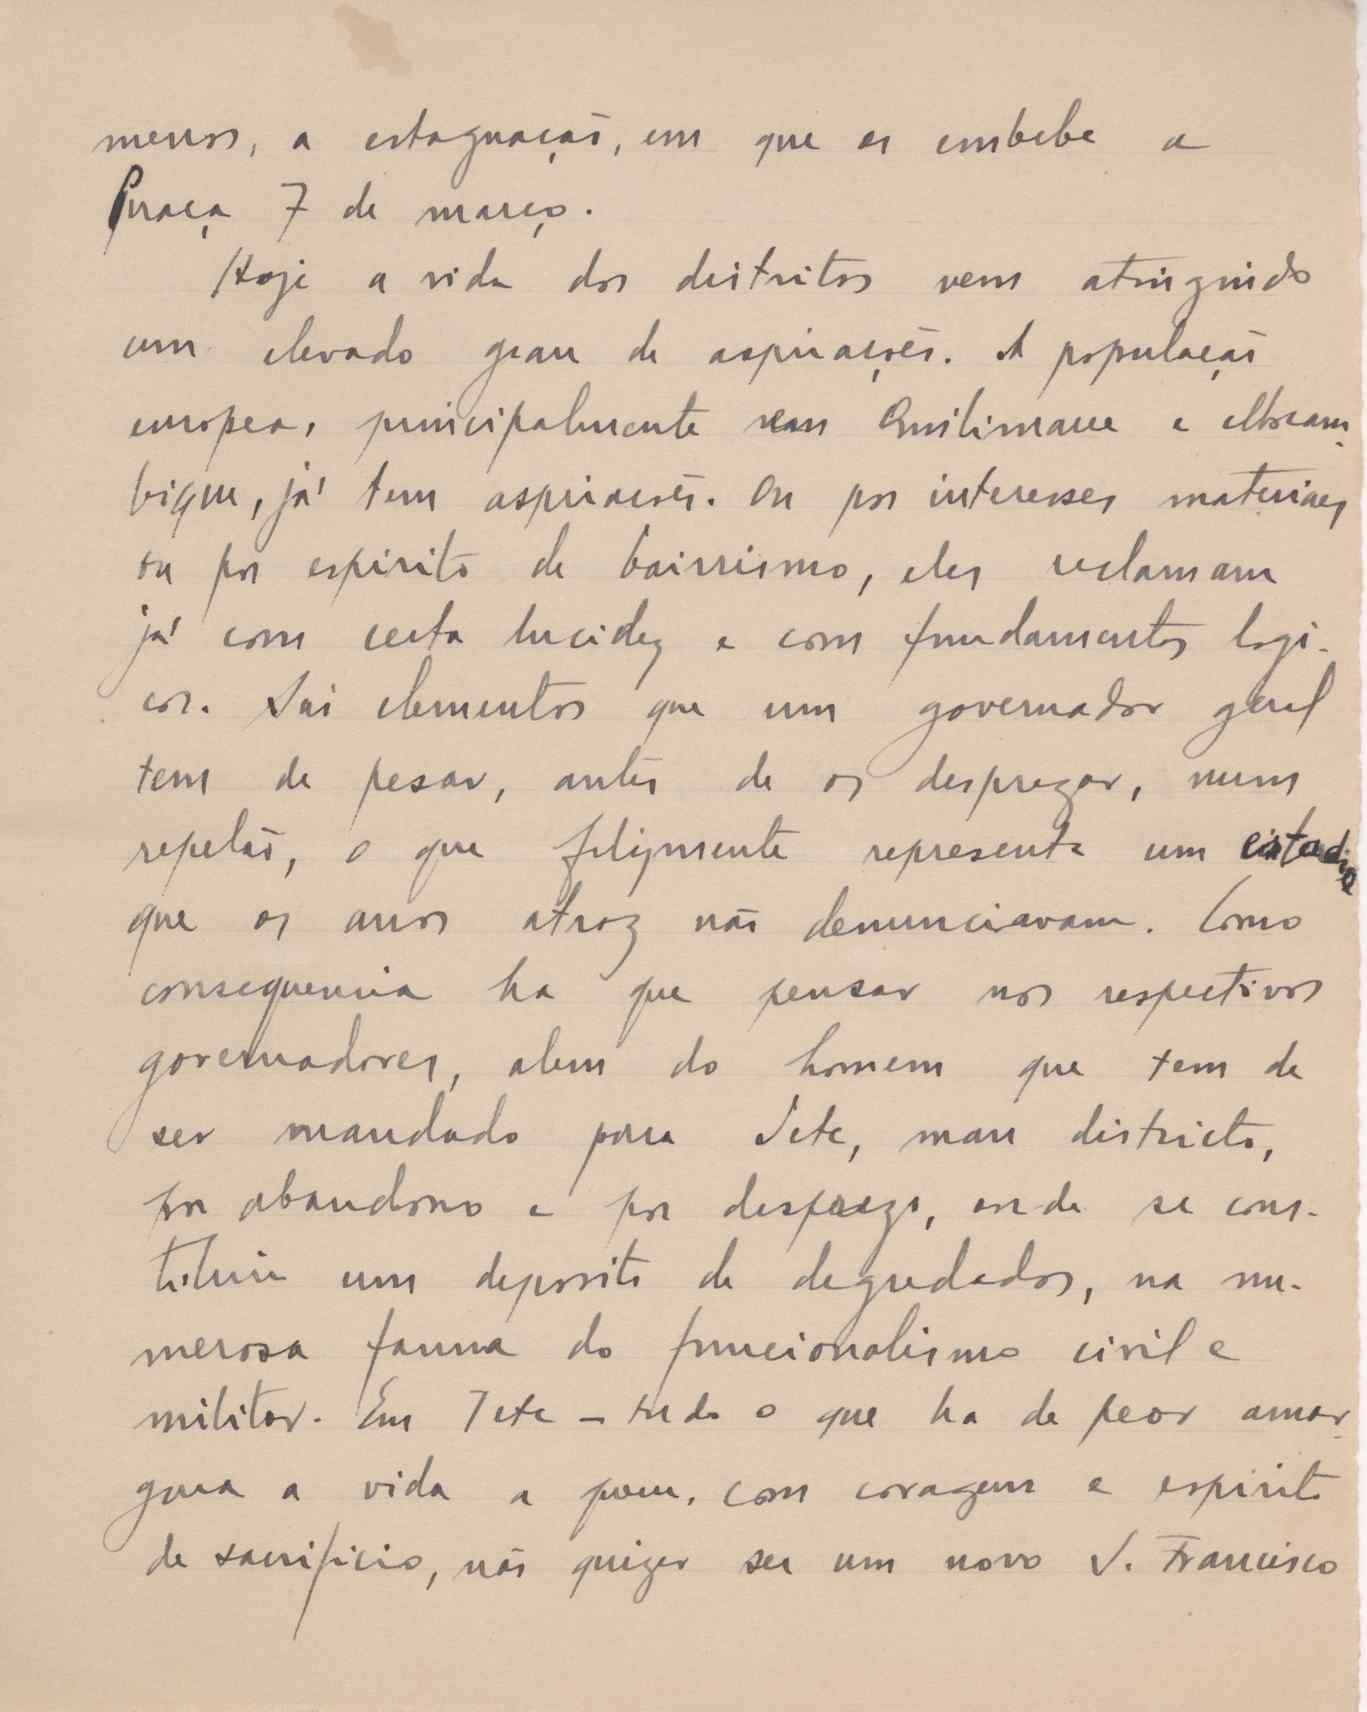 menos, a estagnação, em que se embebe a
Praça 7 de março.
Hoje a vida dos distritos vem atinguindo
um elevado grau de aspirações. A população
europea, principalmente em Quilimane e Moçam-
bique, já tem aspirações. Ou por interesses materiaes
ou por espirito de bairrismo, eles reclamam
já com certa lucidez e com fundamentos logi-
cos. São elementos que um governador geral
tem de pesar, antes de os desprezar, num
repelão, o que felizmente representa um estadio
que os anos atraz não denunciavam. Como
consequencia ha que pensar nos respectivos
governadores, alem do homem que tem de
ser mandado para Tete, mau districto,
por abandono e por desprezo, onde se cons-
tituiu um deposito de degredados, na nu-
merosa fauna do funcionalismo civil e
militar. Em Tete – tudo o que ha de peor amar-
gura a vida a quem, com coragem e espirito
de sacrificio, não quizer ser um novo S. Francisco